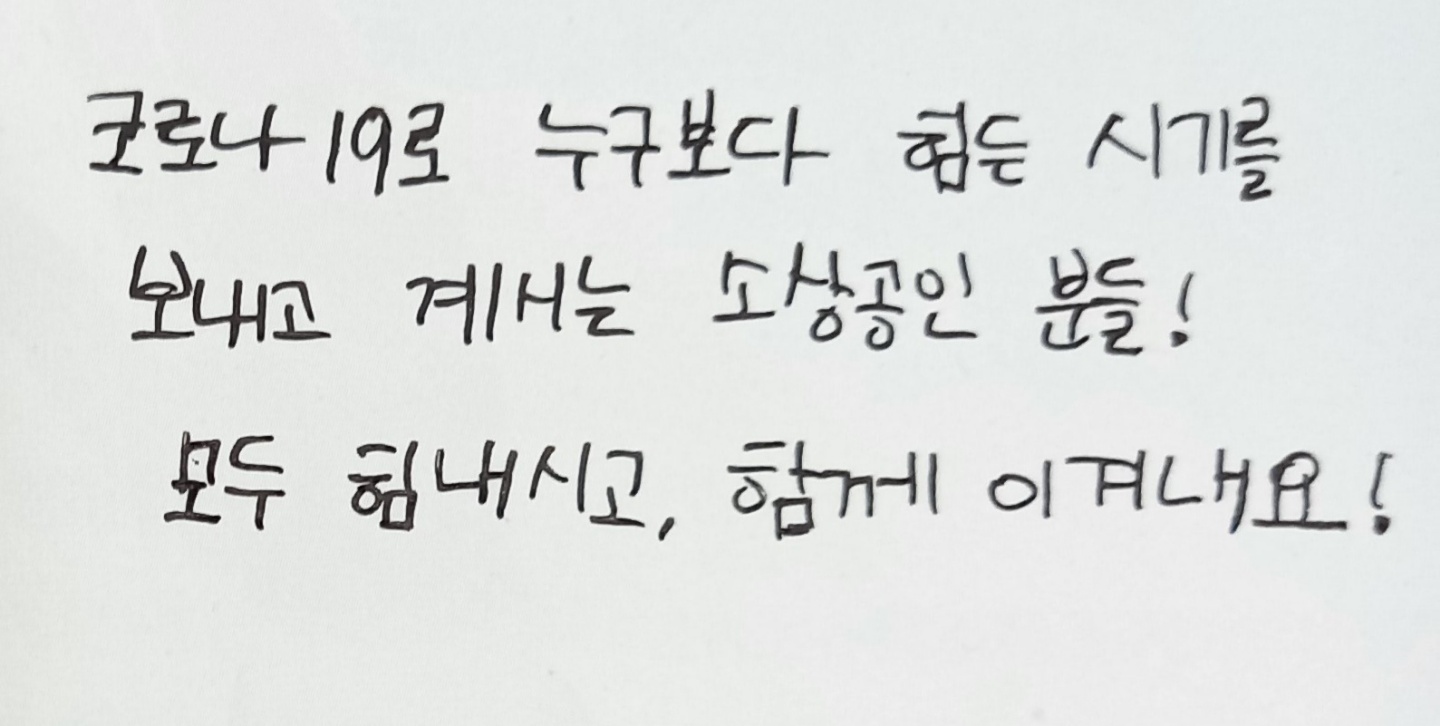 코로나19로 누구보다 힘든 시기를
보내고 계시는 소상공인 분들!
모두 힘내시고, 함께 이겨내요!